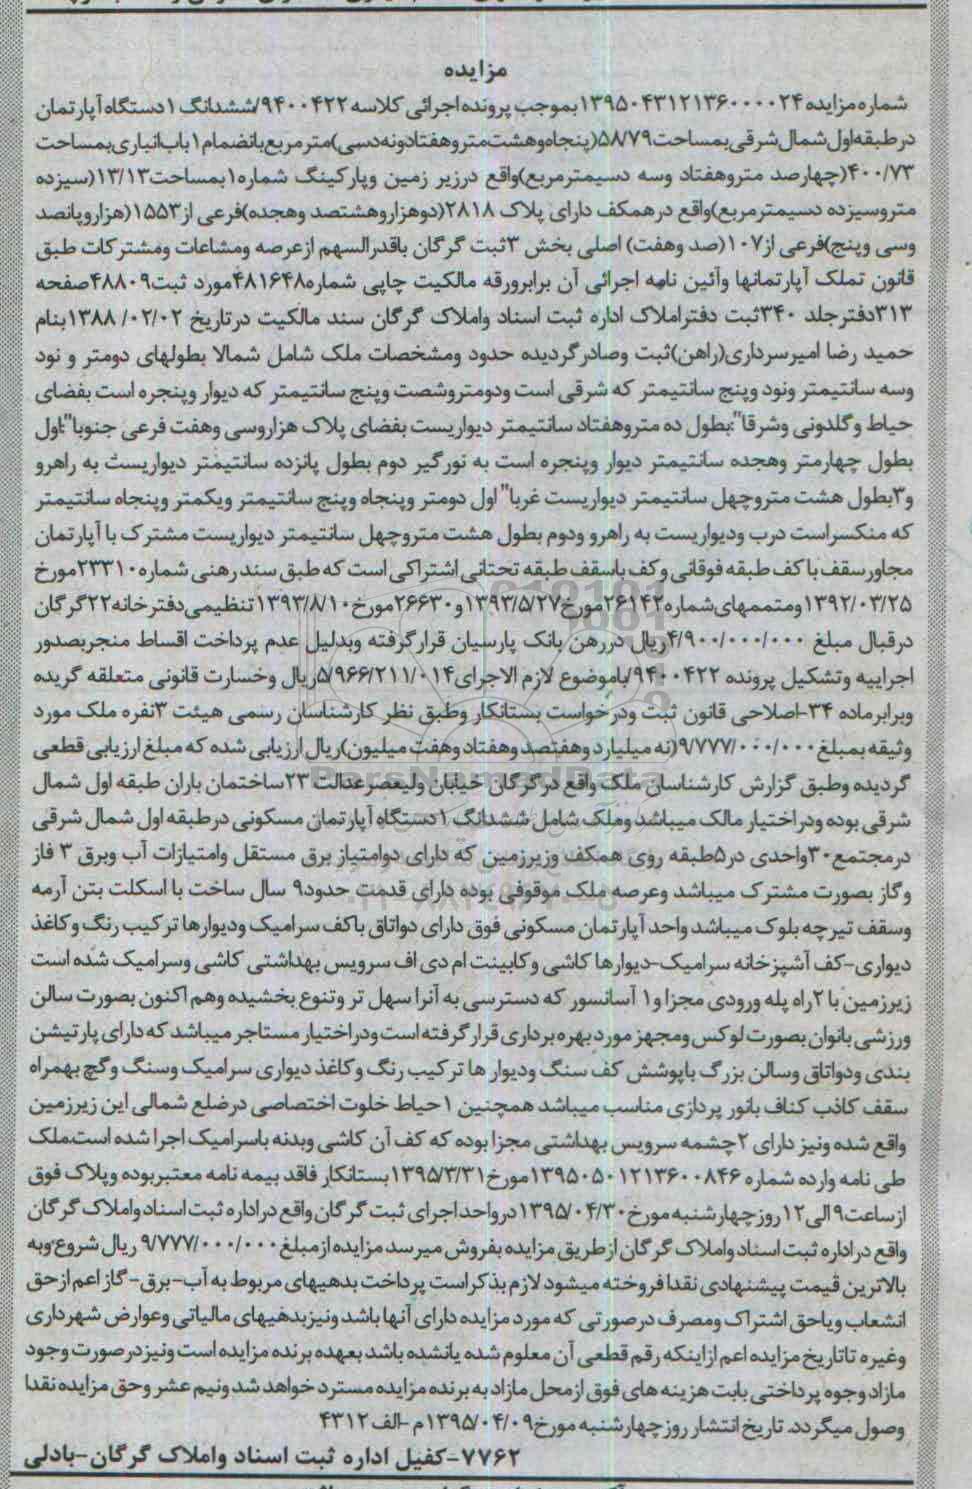 مزایده
شماره مزایده ۱۳۹۵۰۴۳۱۲۱۳۶۰۰۰۰۲۴ بموجب پرونده اجرائی کلاسه ۹۴۰۰۴۲۲/ششدانگ ۱ دستگاه آپارتمان
درطبقه اول شمال شرقی بمساحت ۵۸/۷۹(پنجاه وهشت متر وهفتادونه دسی)مترمربع بانضمام ۱ باب انباری بمساحت
۴۰۰/۷۳(چهارصد متروهفتاد وسه دسیمترمربع)واقع درزیر زمین وپارکینگ شماره۱ بمساحت ۱۳/۱۳(سیزده
متروسیزده دسیمترمربع)واقع درهمکف دارای پلاک ۲۸۱۸(دوهزاروهشتصد وهجده)فرعی از ۱۵۵۳(هزاروپانصد
وسی وپنج)فرعی از ۱۰۷(صد وهفت) اصلی بخش ۳ثبت گرگان باقدرالسهم ازعرصه ومشاعات ومشترکات طبق
قانون تملک آپارتمانها وآئین نامه اجرائی آن برابرورقه مالکیت چاپی شماره۴۸۱۶۴۸مورد ثبت۴۸۸۰۹صفحه
۳۱۳دفترجلد ۳۴۰ثبت دفتراملاک اداره ثبت اسناد واملاک گرگان سند مالکیت درتاریخ ۱۳۸۸/۰۲/۰۲بنام
حمید رضا امیرسرداری(راهن)ثبت وصادرگردیده حدود ومشخصات ملک شامل شمالا بطولهای دومتر و نود
وسه سانتیمتر ونود وپنج سانتیمتر که شرقی است ودومتروشصت وپنج سانتیمتر که دیوار وپنجره است بفضای
حیاط وگلدونی وشرقا":بطول ده متروهفتاد سانتیمتر دیواریست بفضای پلاک هزاروسی وهفت فرعی جنوبا":اول
بطول چهارمتر وهجده سانتیمتر دیوار وپنجره است به نورگیر دوم بطول پانزده سانتیمتر دیواریست به راهرو
و۳بطول هشت متروچهل سانتیمتر دیواریست غربا" اول دومتر وپنجاه وپنج سانتیمتر ویکمتر وپنجاه سانتیمتر
که منکسراست درب ودیواریست به راهرو ودوم بطول هشت متروچهل سانتیمتر دیواریست مشترک با آپارتمان
مجاورسقف باکف طبقه فوقانی وکف باسقف طبقه تحتانی اشتراکی است که طبق سند رهنی شماره۲۳۳۱۰مورخ
۱۳۹۲/۰۳/۲۵ومتممهای شماره۲۶۱۴۲مورخ۱۳۹۳/۵/۲۷و۲۶۶۳۰مورخ۱۳۹۳/۸/۱۰تنظیمی دفترخانه۲۲گرگان
درقبال مبلغ ۴/۹۰۰/۰۰۰/۰۰۰ریال دررهن بانک پارسیان قرارگرفته وبدلیل عدم پرداخت اقساط منجربصدور
اجراییه وتشکیل پرونده ۹۴۰۰۴۲۲/باموضوع لازم الاجرای۵/۹۶۶/۲۱۱/۰۱۴ریال وخسارت قانونی متعلقه گریده
وبرابرماده ۳۴-اصلاحی قانون ثبت ودرخواست بستانکار وطبق نظر کارشناسان رسمی هیئت ۳نفره ملک مورد
وثیقه بمبلغ۹/۷۷۷/۰۰۰/۰۰۰(نه میلیارد وهفتصد وهفتاد وهفت میلیون)ریال ارزیابی شده که مبلغ ارزیابی قطعی
گردیده وطبق گزارش کارشناسان ملک واقع درگرگان خیابان ولیعصرعدالت ۲۳ساختمان باران طبقه اول شمال
شرقی بوده ودراختیار مالک میباشد وملک شامل ششدانگ ۱ دستگاه آپارتمان مسکونی درطبقه اول شمال شرقی
درمجتمع۳۰واحدی در۵طبقه روی همکف وزیرزمین که دارای دوامتیاز برق مستقل وامتیازات آب وبرق ۳ فاز
وگاز بصورت مشترک میباشد وعرصه ملک موقوفی بوده دارای قدمت حدود۹ سال ساخت با اسکلت بتن آرمه
وسقف تیرچه بلوک میباشد واحد آپارتمان مسکونی فوق دارای دواتاق باکف سرامیک ودیوارها ترکیب رنگ وکاغذ
دیواری-کف آشپزخانه سرامیک-دیوارها کاشی وکابینت ام دی اف سرویس بهداشتی کاشی وسرامیک شده است
زیرزمین با ۲راه پله ورودی مجزا و۱ آسانسور که دسترسی به آنرا سهل تر وتنوع بخشیده وهم اکنون بصورت سالن
ورزشی بانوان بصورت لوکس ومجهز مورد بهره برداری قرارگرفته است ودراختیار مستاجر میباشد که دارای پارتیشن
بندی ودواتاق وسالن بزرگ باپوشش کف سنگ ودیوار ها ترکیب رنگ وکاغذ دیواری سرامیک وسنگ وگچ بهمراه
سقف کاذب کناف بانور پردازی مناسب میباشد همچنین ۱ حیاط خلوت اختصاصی درضلع شمالی این زیرزمین
واقع شده ونیز دارای ۲چشمه سرویس بهداشتی مجزا بوده که کف آن کاشی وبدنه باسرامیک اجرا شده است.ملک
طی نامه وارده شماره ۱۳۹۵۰۵۰۱۲۱۳۶۰۰۸۴۶مورخ۱۳۹۵/۳/۳۱بستانکار فاقد بیمه نامه معتبربوده وپلاک فوق
ازساعت۹الی۱۲روزچهارشنبه مورخ۱۳۹۵/۰۴/۳۰درواحد اجرای ثبت گرگان واقع دراداره ثبت اسناد واملاک گرگان
واقع دراداره ثبت اسناد واملاک گرگان ازطریق مزایده بفروش میرسد مزایده ازمبلغ ۹/۷۷۷/۰۰۰/۰۰۰ ریال شروع وبه
بالاترین قیمت پیشنهادی نقدا فروخته میشود لازم بذکراست پرداخت بدهیهای مربوط به آب-برق-گاز اعم ازحق
انشعاب ویاحق اشتراک ومصرف درصورتی که مورد مزایده دارای آنها باشد ونیزبدهیهای مالیاتی وعوارض شهرداری
وغیره تاتاریخ مزایده اعم ازاینکه رقم قطعی آن معلوم شده یانشده باشد بعهده برنده مزایده است ونیز درصورت وجود
مازاد وجوه پرداختی بابت هزینه های فوق ازمحل مازاد به برنده مزایده مسترد خواهد شد ونیم عشر وحق مزایده نقدا
وصول میگردد. تاریخ انتشار روزچهارشنبه مورخ۱۳۹۵/۰۴/۰۹م-الف ۴۳۱۲
۷۷۶۲-کفیل اداره ثبت اسناد واملاک گرگان-بادلی
ParsNamadData